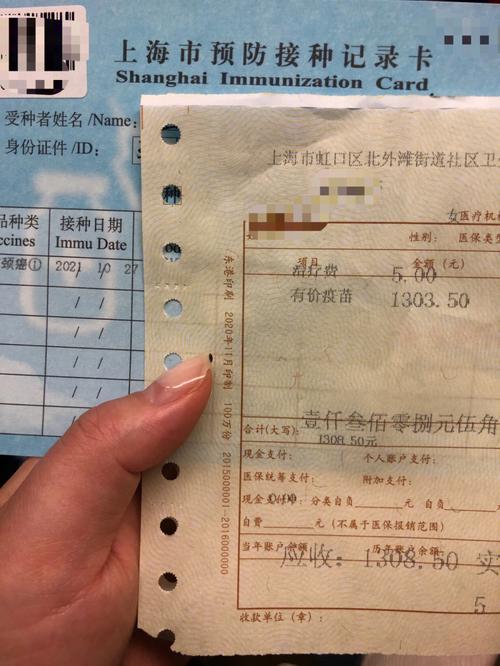 上海市预防接种记录卡
Shanghai Immunization Card
受种者姓名 /Name:
身份证件 /ID:
品种类 接种日期
ccines Immu Date
颈癌① 2021 10 27
上海市虹口区北外滩街道社区卫
女 医疗机
性别: 医保类
项目 金额(元)
治疗费 5.00
有价疫苗 1303.50
东港印刷 2020年11月印制 100万份 2015000001-2016000000
合计(大写): 壹仟叁佰零捌元伍角
1308.50元
现金支付: 个人账户支付:
医保统筹支付: 附加支付:
现金支付中: 分类自负 元 自负 元
0.00
自费 元 (不属于医保报销范围)
当年账户余额 历年账户余额:
应收: 1308.50 实
5
收款单位(章):